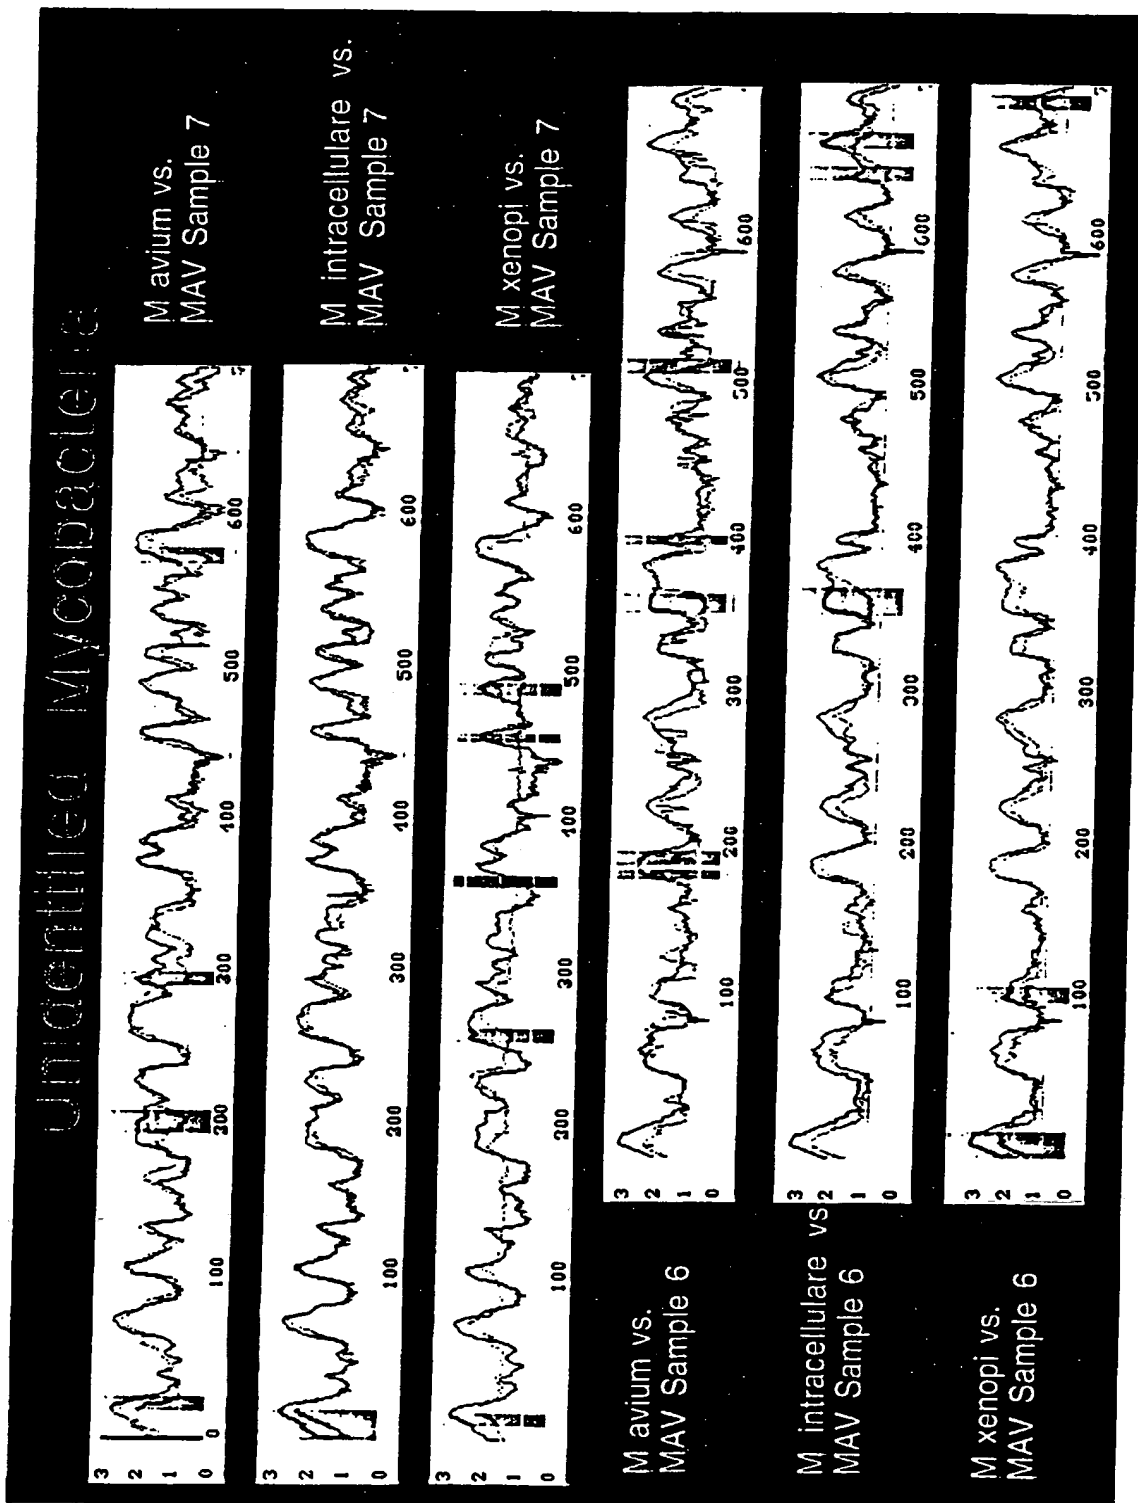 Unidentified Mycobacteria
3
2
1
0
0
100
200
300
400
500
600
M avium vs.
MAV Sample 7
3
2
1
0
100
200
300
400
500
600
M intracellulare vs.
MAV Sample 7
3
2
1
0
100
200
300
400
500
600
M xenopi vs.
MAV Sample 7
M avium vs.
MAV Sample 6
3
2
1
0
100
200
300
400
500
600
M intracellulare vs
MAV Sample 6
3
2
1
0
100
200
300
400
500
600
M xenopi vs.
MAV Sample 6
3
2
1
0
100
200
300
400
500
600